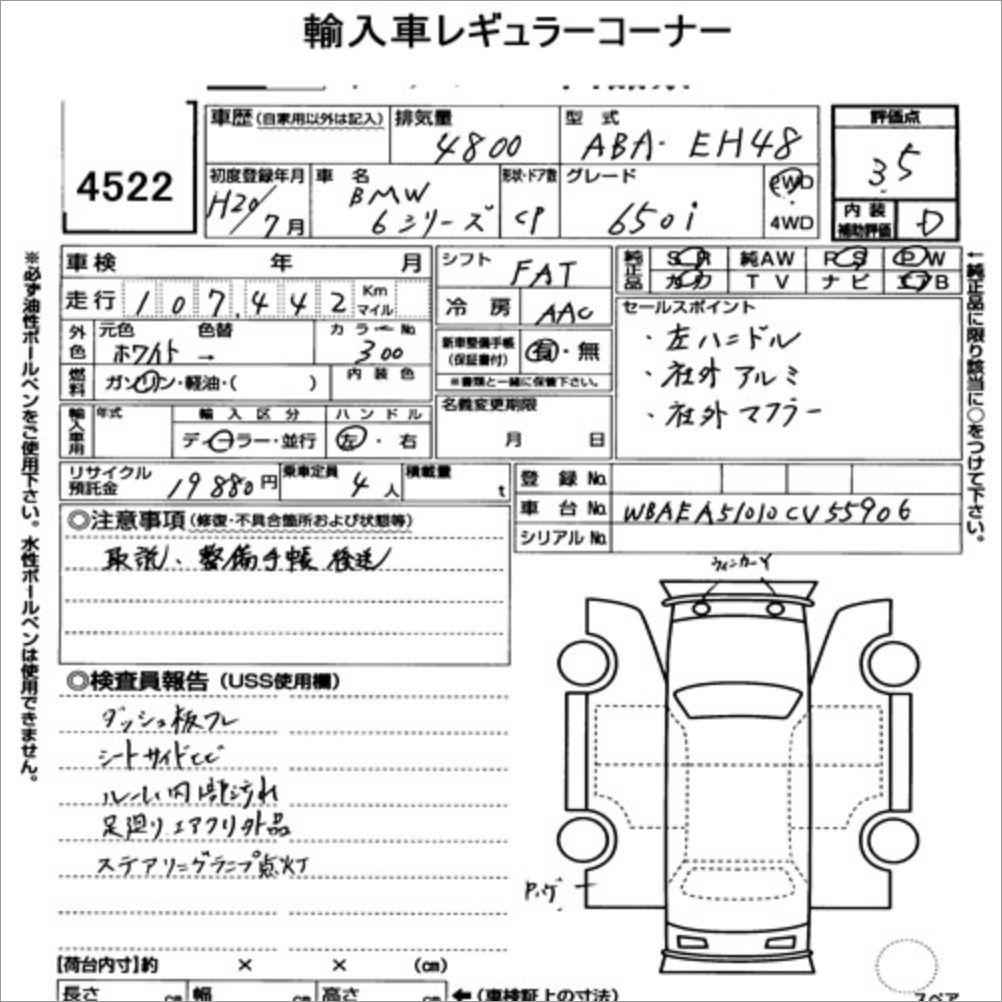 輸入車レギュラーコーナー
4522
車歴 (自家用以外は記入)
排気量
4800
型式
ABA-EH48
評価点
3.5
内装補助評価
D
初度登録年月
H20/7月
車名
BMW
6シリーズ
形状・ドア数
CP
グレード
650i
2WD
4WD
車検 年 月
走行 107,442 Km マイル
シフト
FAT
冷房
AAC
純正品
SR 純AW PS PW
カワ TV ナビ エアB
外色
元色 色替
ホワイト →
カラーNo.
300
燃料
ガソリン・軽油・( )
内装色
新車整備手帳
(保証書付)
有・無
※書類と一緒に保管下さい。
セールスポイント
・左ハンドル
・社外アルミ
・社外マフラー
輸入車用
年式
輸入区分
ディーラー・並行
ハンドル
左・右
名義変更期限
月 日
リサイクル預託金
19880円
乗車定員
4人
積載量
t
登録No.
車台No.
WBAEA51010CV55906
シリアルNo.
◎注意事項 (修復・不具合箇所および状態等)
取説、整備手帳 後送
◎検査員報告 (USS使用欄)
ダッシュ板フレ
シートサイドヒビ
ルーム内部汚れ
足廻りエアクリ外品
ステアリングランプ点灯
ウィンカーY
【荷台内寸】約 × × (cm)
長さ cm 幅 cm 高さ cm ←(車検証上の寸法)
スペア
※必ず油性ボールペンをご使用下さい。水性ボールペンは使用できません。
←純正品に限り該当に○をつけて下さい。